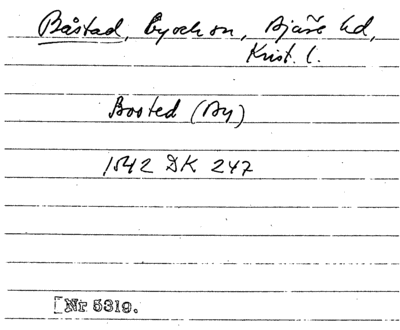 Båstad, By och sn, Bjäre hd,
Krist. l.
Bosted (By)
1542 DK 247
[Nr 5319.